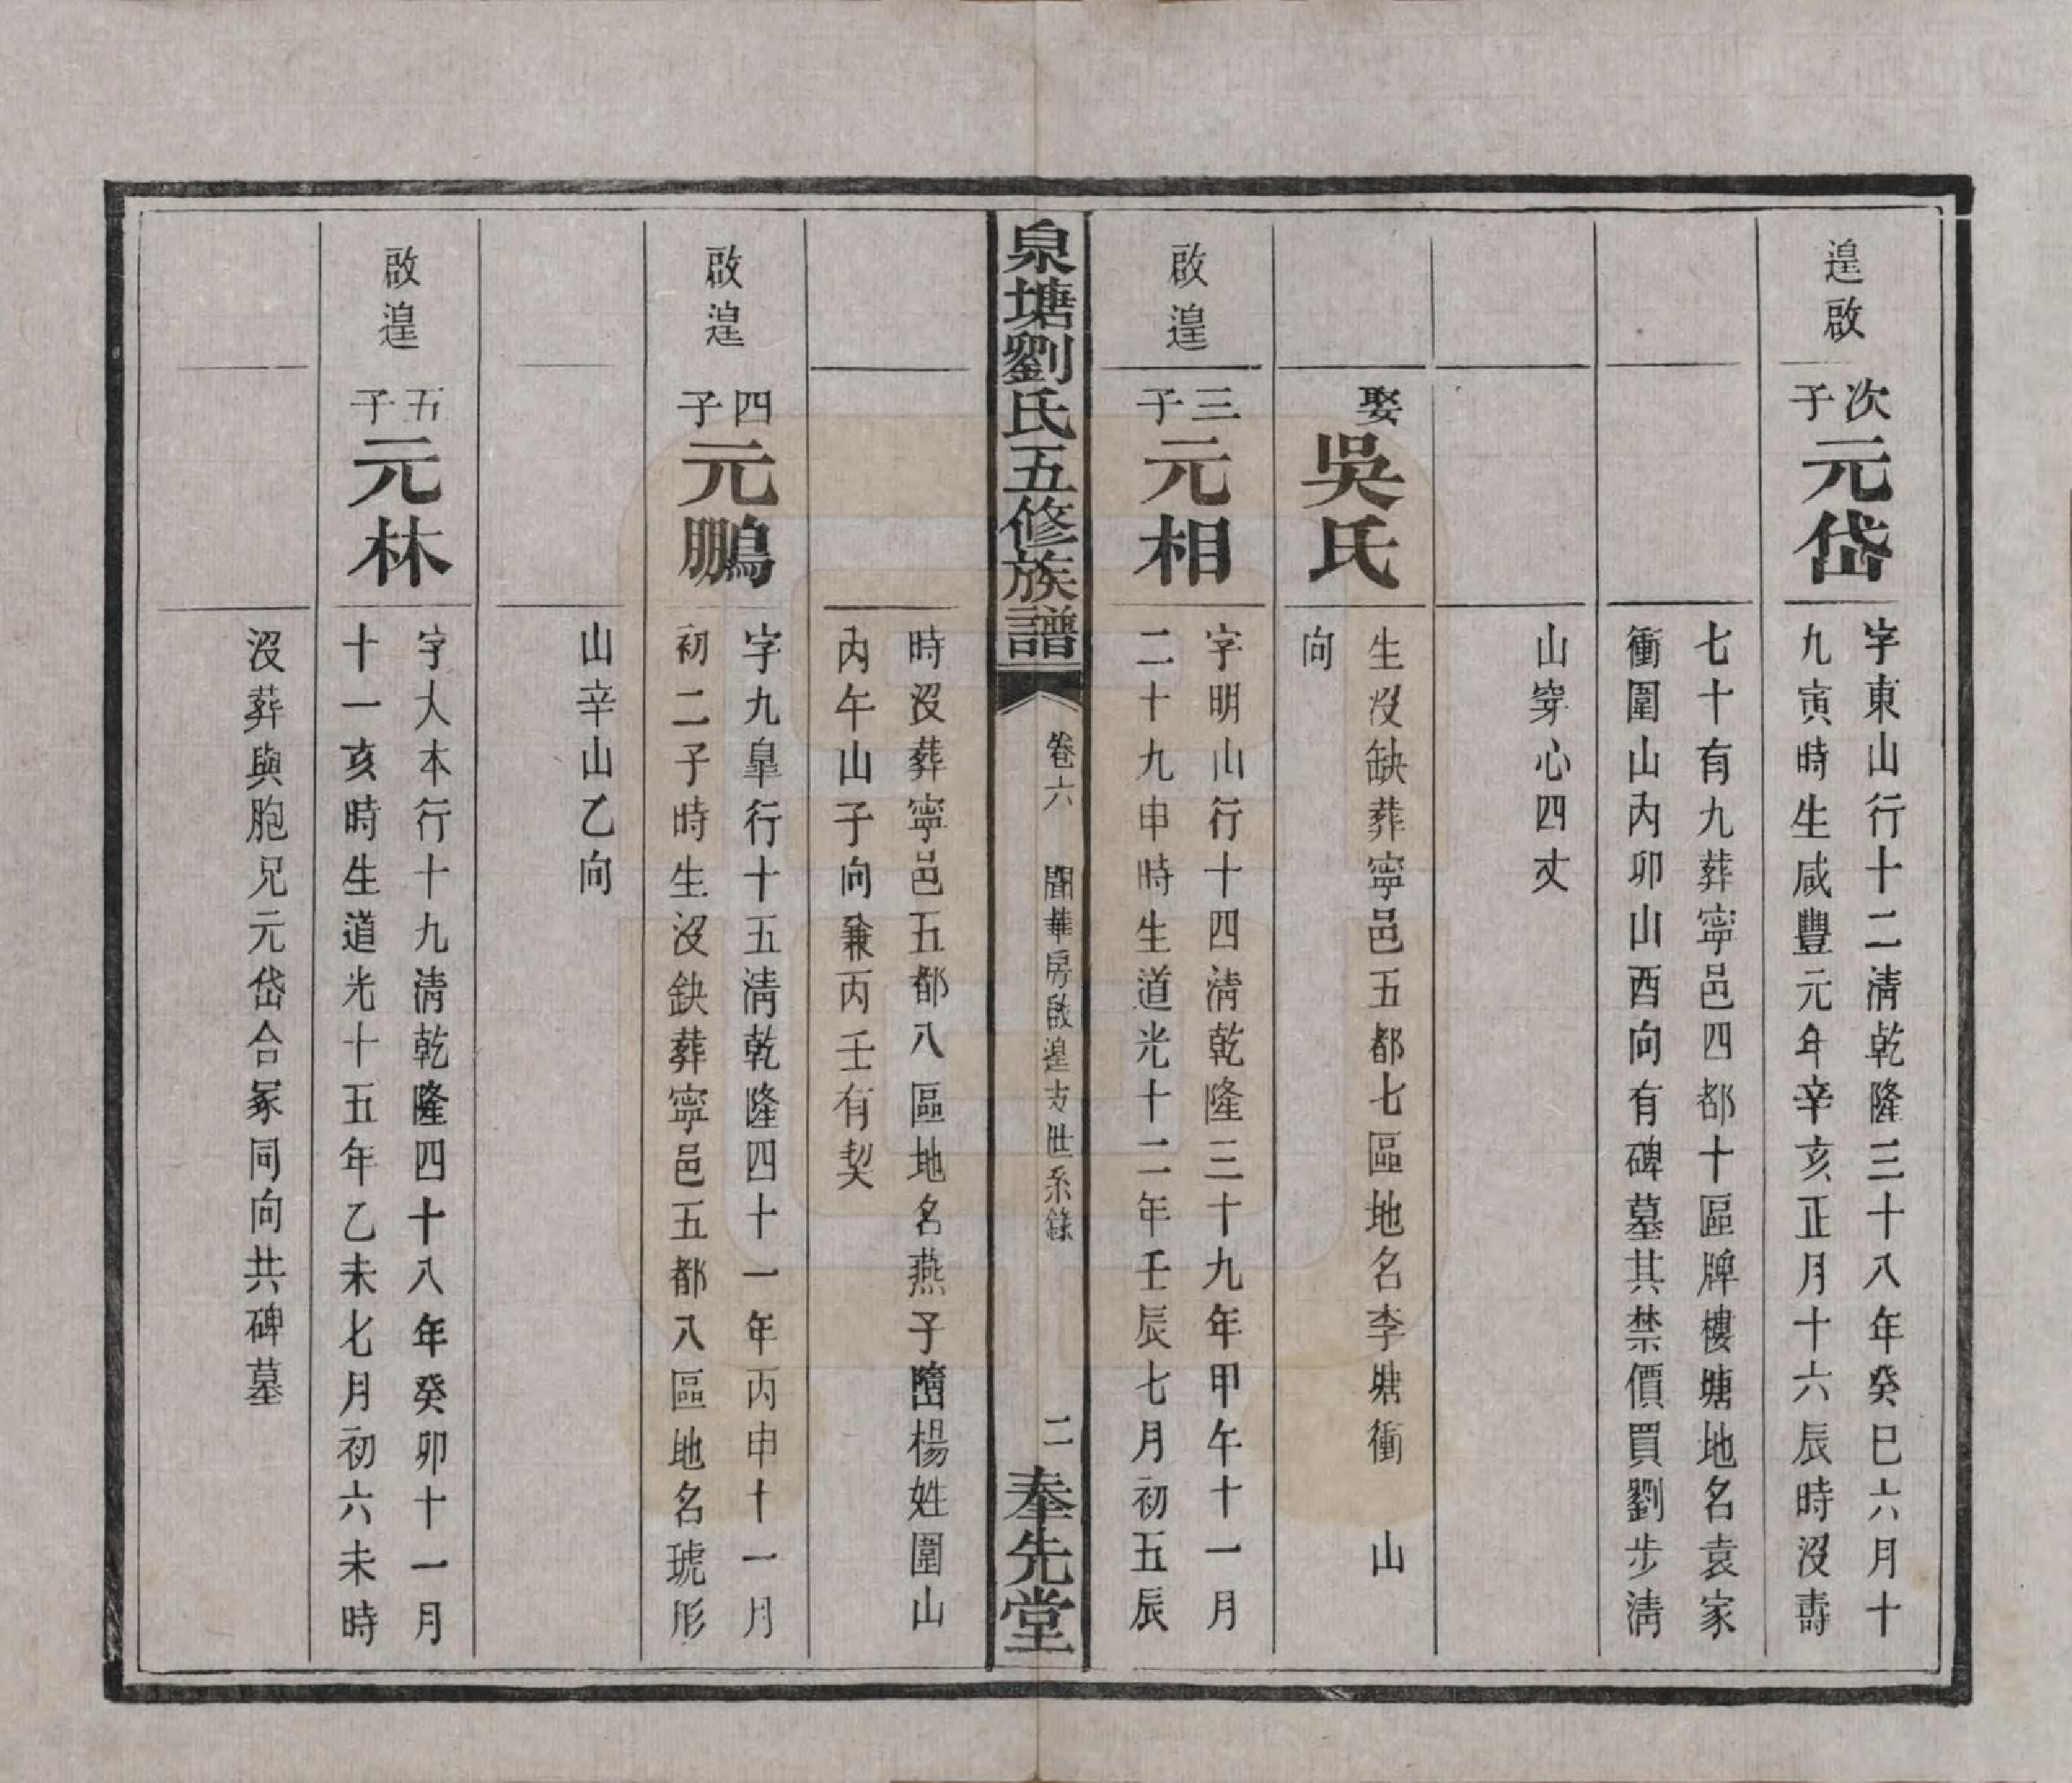 遑啟
次子
元岱
字東山行十二清乾隆三十八年癸巳六月十
九寅時生咸豐元年辛亥正月十六辰時沒壽
七十有九葬寧邑四都十區牌樓塘地名袁家
衝圍山內卯山酉向有碑墓其禁價買劉步清
山穿心四丈
娶
吳氏
生沒缺葬寧邑五都七區地名李塘衝 山
向
啟遑
三子
元相
字明山行十四清乾隆三十九年甲午十一月
二十九申時生道光十二年壬辰七月初五辰
泉塘劉氏五修族譜
卷六
闇華房啟遑支世系錄
二
奉先堂
時沒葬寧邑五都八區地名燕子壋楊姓圍山
內午山子向兼丙壬有契
啟遑
四子
元鵬
字九臯行十五清乾隆四十一年丙申十一月
初二子時生沒缺葬寧邑五都八區地名琥形
山辛山乙向
啟遑
五子
元林
字人本行十九清乾隆四十八年癸卯十一月
十一亥時生道光十五年乙未七月初六未時
沒葬與胞兄元岱合冢同向共碑墓